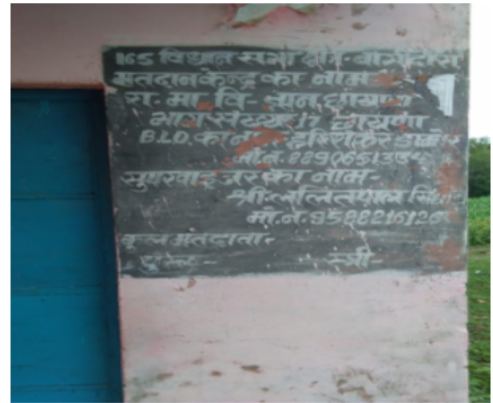 165 विधान सभा क्षेत्र- बागीदौरा
मतदान केन्द्र का नाम-
रा. मा. वि.
भाग संख्या 17
B.L.O. का नाम
मो.नं. 8890651374
सुपरवाईजर का नाम-
श्री ललितपाल सिंह
मो.नं. 9588216126
कुल मतदाता-
पुरूष- स्त्री-